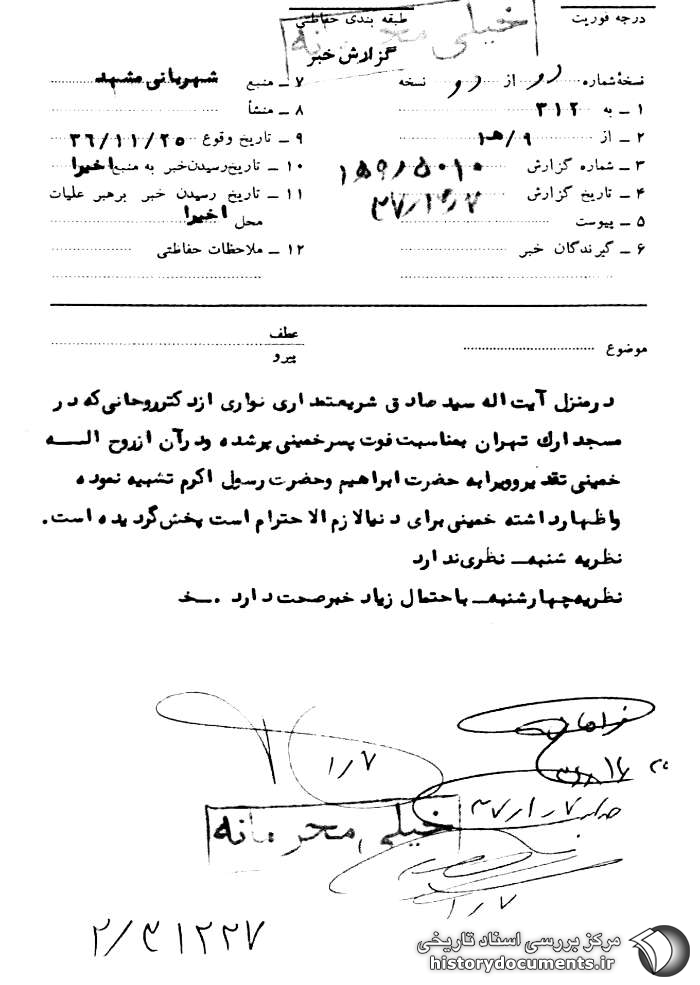 درجه فوریت
طبقه بندی حفاظتی
خیلی محرمانه
گزارش خبر
نسخهٔ شماره دو از دو نسخه
۱ ـ به ۳۱۲
۲ ـ از ۹/ه۱
۳ ـ شماره گزارش
۴ ـ تاریخ گزارش
۵ ـ پیوست
۶ ـ گیرندگان خبر
۷ ـ منبع شهربانی مشهد
۸ ـ منشأ
۹ ـ تاریخ وقوع ۳۶/۱۱/۲۵
۱۰ ـ تاریخ رسیدن خبر به منبع اخیرا
۱۱ ـ تاریخ رسیدن خبر برهبر علیات
محل اخیرا
۱۲ ـ ملاحظات حفاظتی
موضوع
عطف
پیرو
درمنزل آیت اله سید صادق شریعتمداری نواری ازدکترروحانی که در
مسجد ارک تهران بمناسبت فوت پسرخمینی پرشده ودرآن ازروح الـــه
خمینی تقدیروویرا به حضرت ابراهیم وحضرت رسول اکرم تشبیه نموده
واظهارداشته خمینی برای دنیا لازم الاحترام است پخش گردیده است.
نظریه شنبه ـ نظری ندارد
نظریه چهارشنبه ـ باحتمال زیاد خبرصحت دارد . ـخـ
۱/۷
۳۷/۱/۷
خیلی محرمانه
۱/۷
۲/۳۱۲۲۷
مرکز بررسی اسناد تاریخی
historydocuments.ir